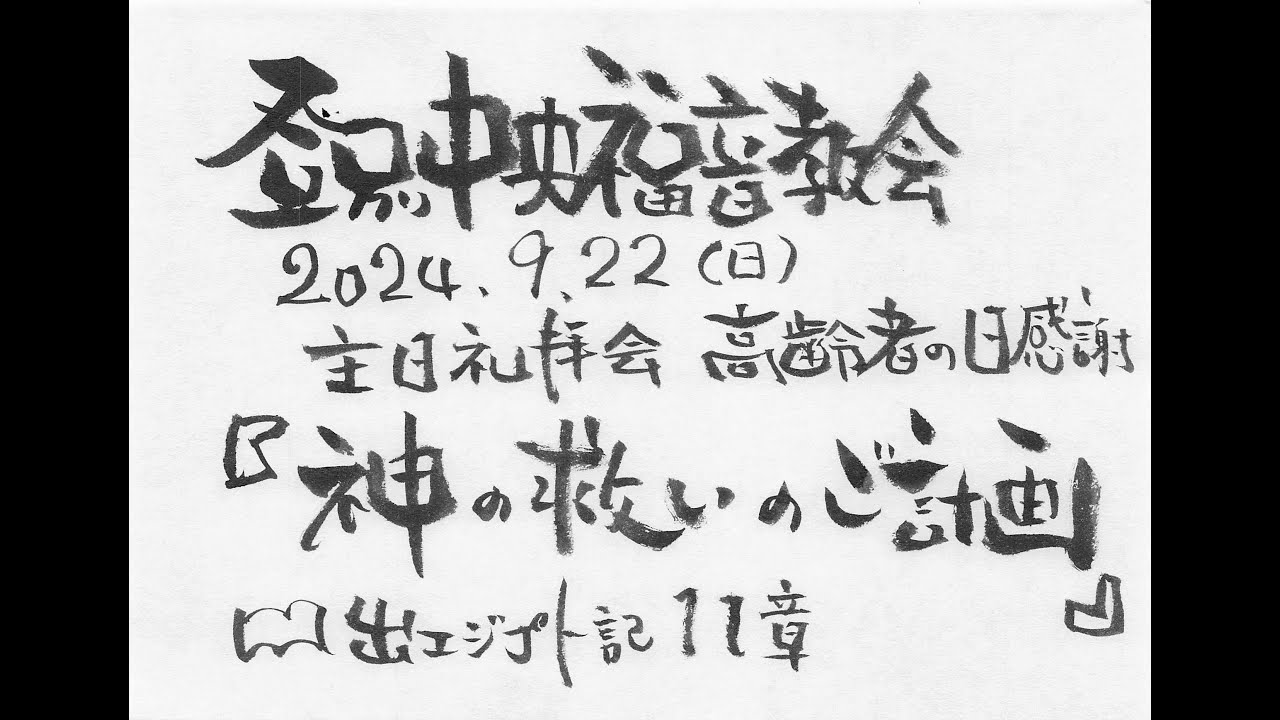 登別中央福音教会
2024.9.22(日)
主日礼拝会 高齢者の日感謝
『神の救いのご計画』
出エジプト記11章